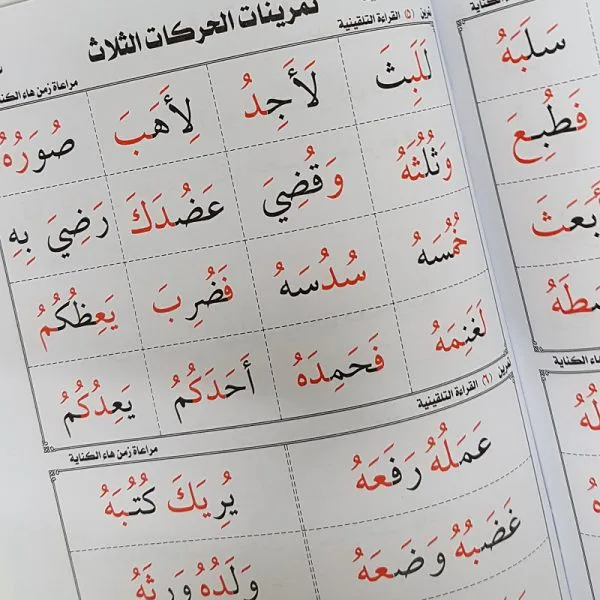 تمرينات الحركات الثلاث
تمرين (٥) القراءة التلقينية
مراعاة زمن هاء الكناية
لَلَبِثَ لَأَجِدُ لِأَهَبَ صُوَرُهُ
وَثُلُثَهُ وَقُضِيَ عَضُدَكَ رَضِيَ بِهِ
خُمُسَهُ سُدُسَهُ فَضُرِبَ يَعِظُكُمُ
لَغَنِمَهُ فَحَمِدَهُ أَحَدَكُمُ يَعِدُكُمُ
تمرين (٦) القراءة التلقينية
مراعاة زمن هاء الكناية
عَمَلُهُ رَفَعَهُ يُرِيكَ كُتُبَهُ
غَضَبُهُ وَضَعَهُ وَلَدُهُ وَرِثَهُ
الكناية
سَلَبَهُ
فَطُبِعَ